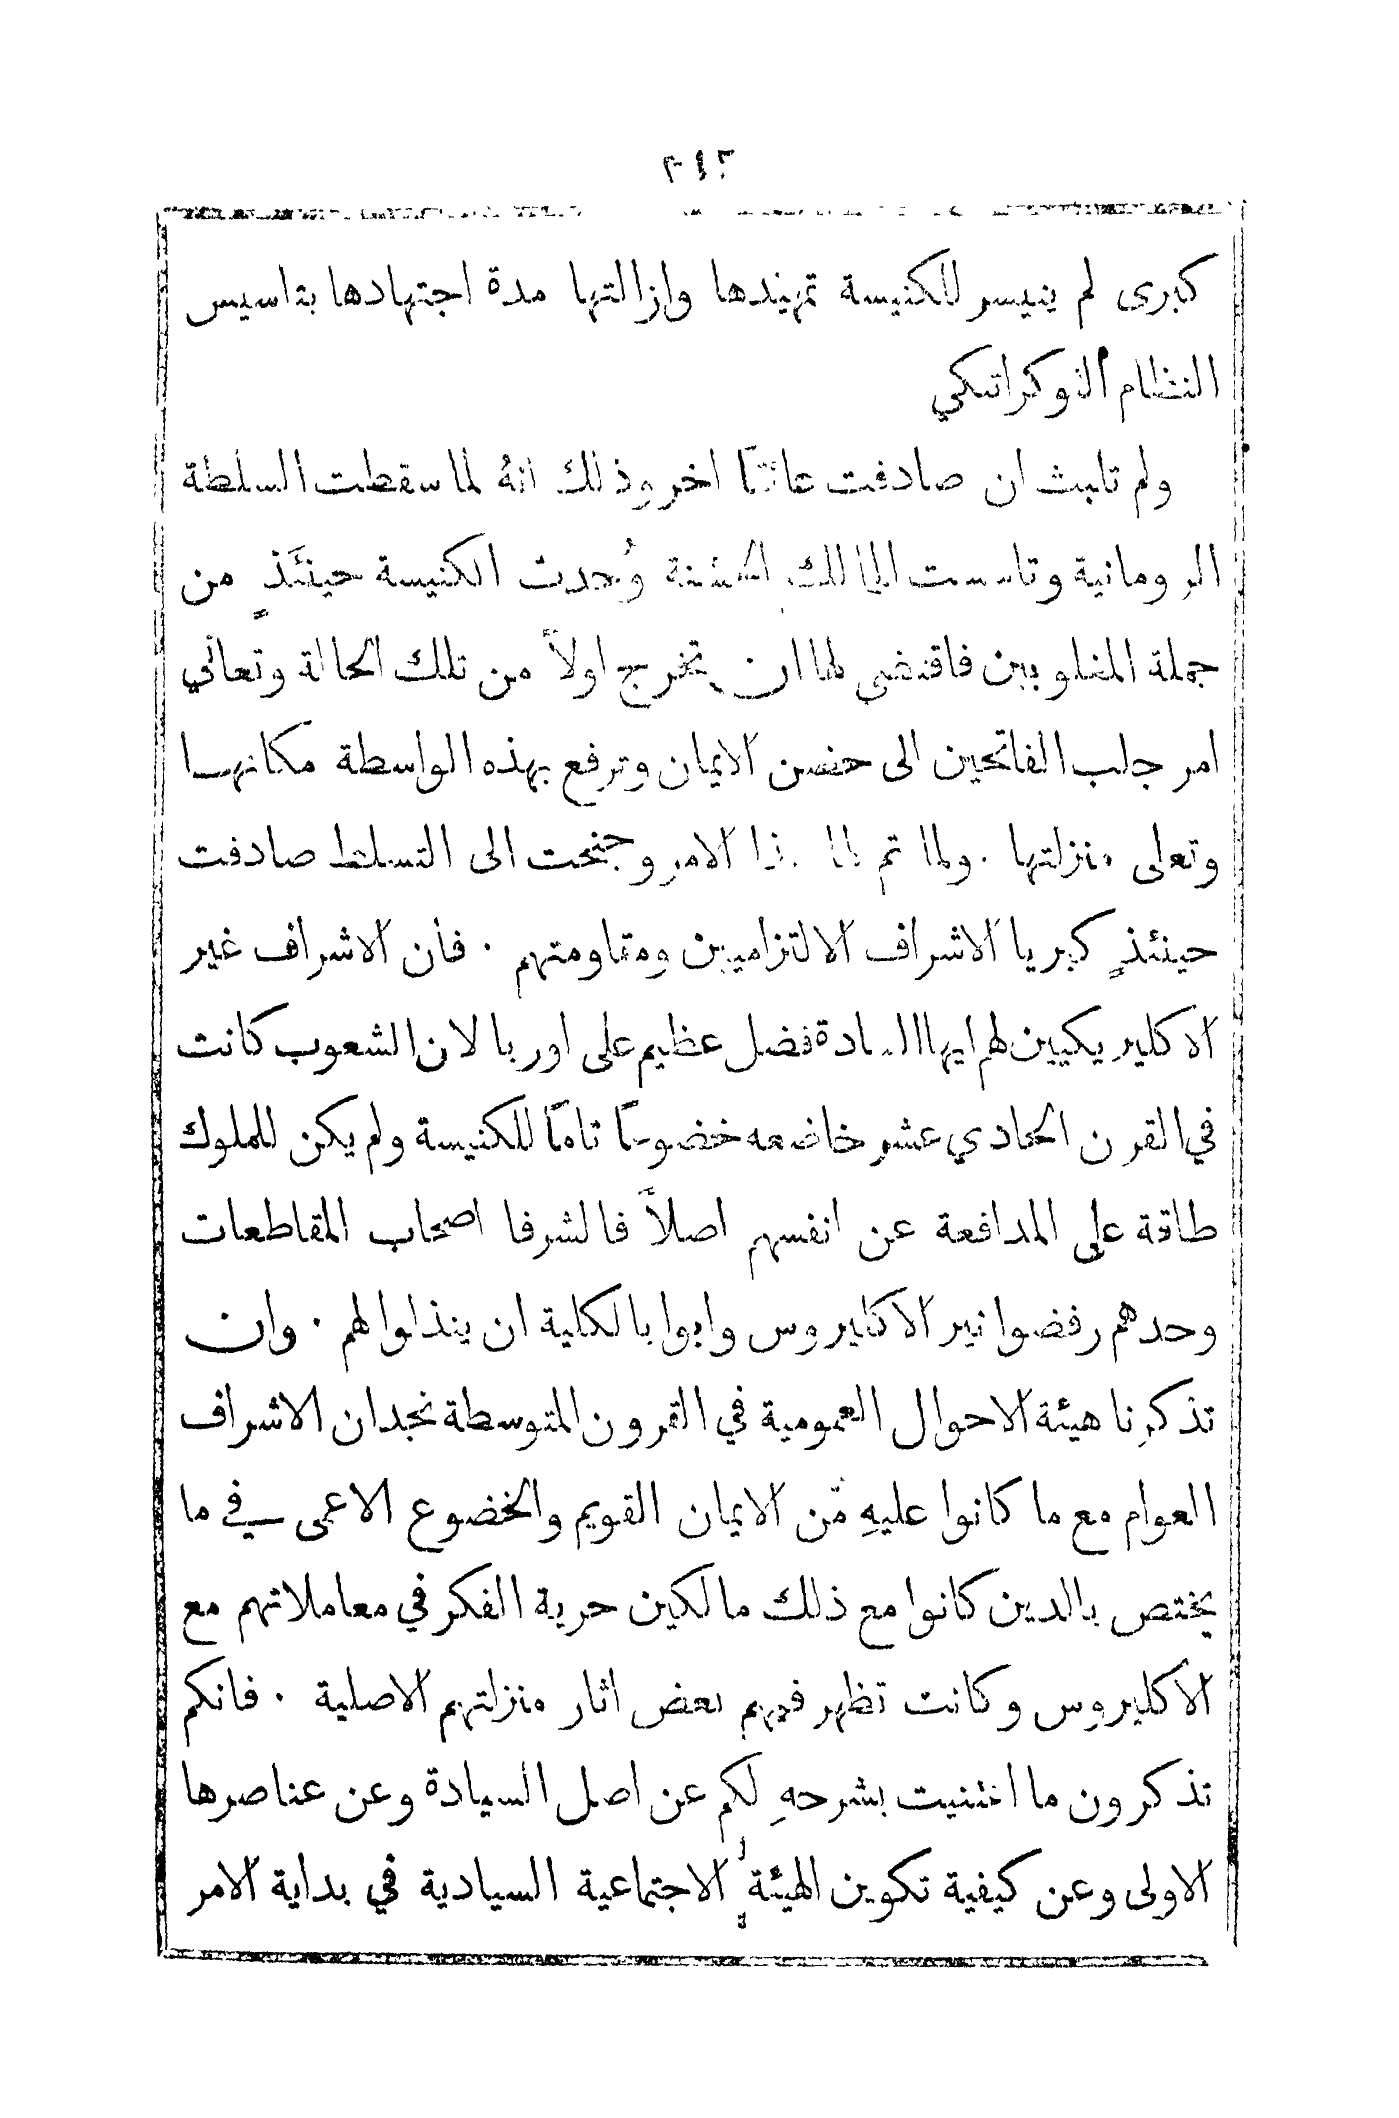 كبرى لم يتيسر للكنيسة تمهيدها وازالتها مدة اجتهادها بتاسيس
النظام الثوكراتيكي
ولم تلبث ان صادفت عائقًا اخر وذلك انهُ لما سقطت السلطة
الرومانية وتاسست الممالك وُجدت الكنيسة حينئذٍ من
جملة المغلوبين فاقتضى لها ان تخرج اولاً من تلك الحالة وتعاني
امر جلب الفاتحين الى حضن الايمان وترفع بهذه الواسطة مكانها
وتعلى منزلتها . ولما تم لها هذا الامر وجنحت الى التسلط صادفت
حينئذٍ كبريا الاشراف الالتزاميين ومقاومتهم . فان الاشراف غير
الاكليريكيين لهم ايها السادة فضل عظيم على اوربا لان الشعوب كانت
في القرن الحادي عشر خاضعه خضوعًا تامًا للكنيسة ولم يكن للملوك
طاقة على المدافعة عن انفسهم اصلاً فالشرفا اصحاب المقاطعات
وحدهم رفضوا نير الاكليروس وابوا بالكلية ان يتذللوا لهم . وان
تذكرنا هيئة الاحوال العمومية في القرون المتوسطة نجد ان الاشراف
العوام مع ما كانوا عليهِ من الايمان القويم والخضوع الاعمى في ما
يختص بالدين كانوا مع ذلك مالكين حرية الفكر في معاملاتهم مع
الاكليروس وكانت تظهر فيهم بعض اثار منزلتهم الاصلية . فانكم
تذكرون ما اعتنيت بشرحهِ لكم عن اصل السيادة وعن عناصرها
الاولى وعن كيفية تكوين الهيئة الاجتماعية السيادية في بداية الامر